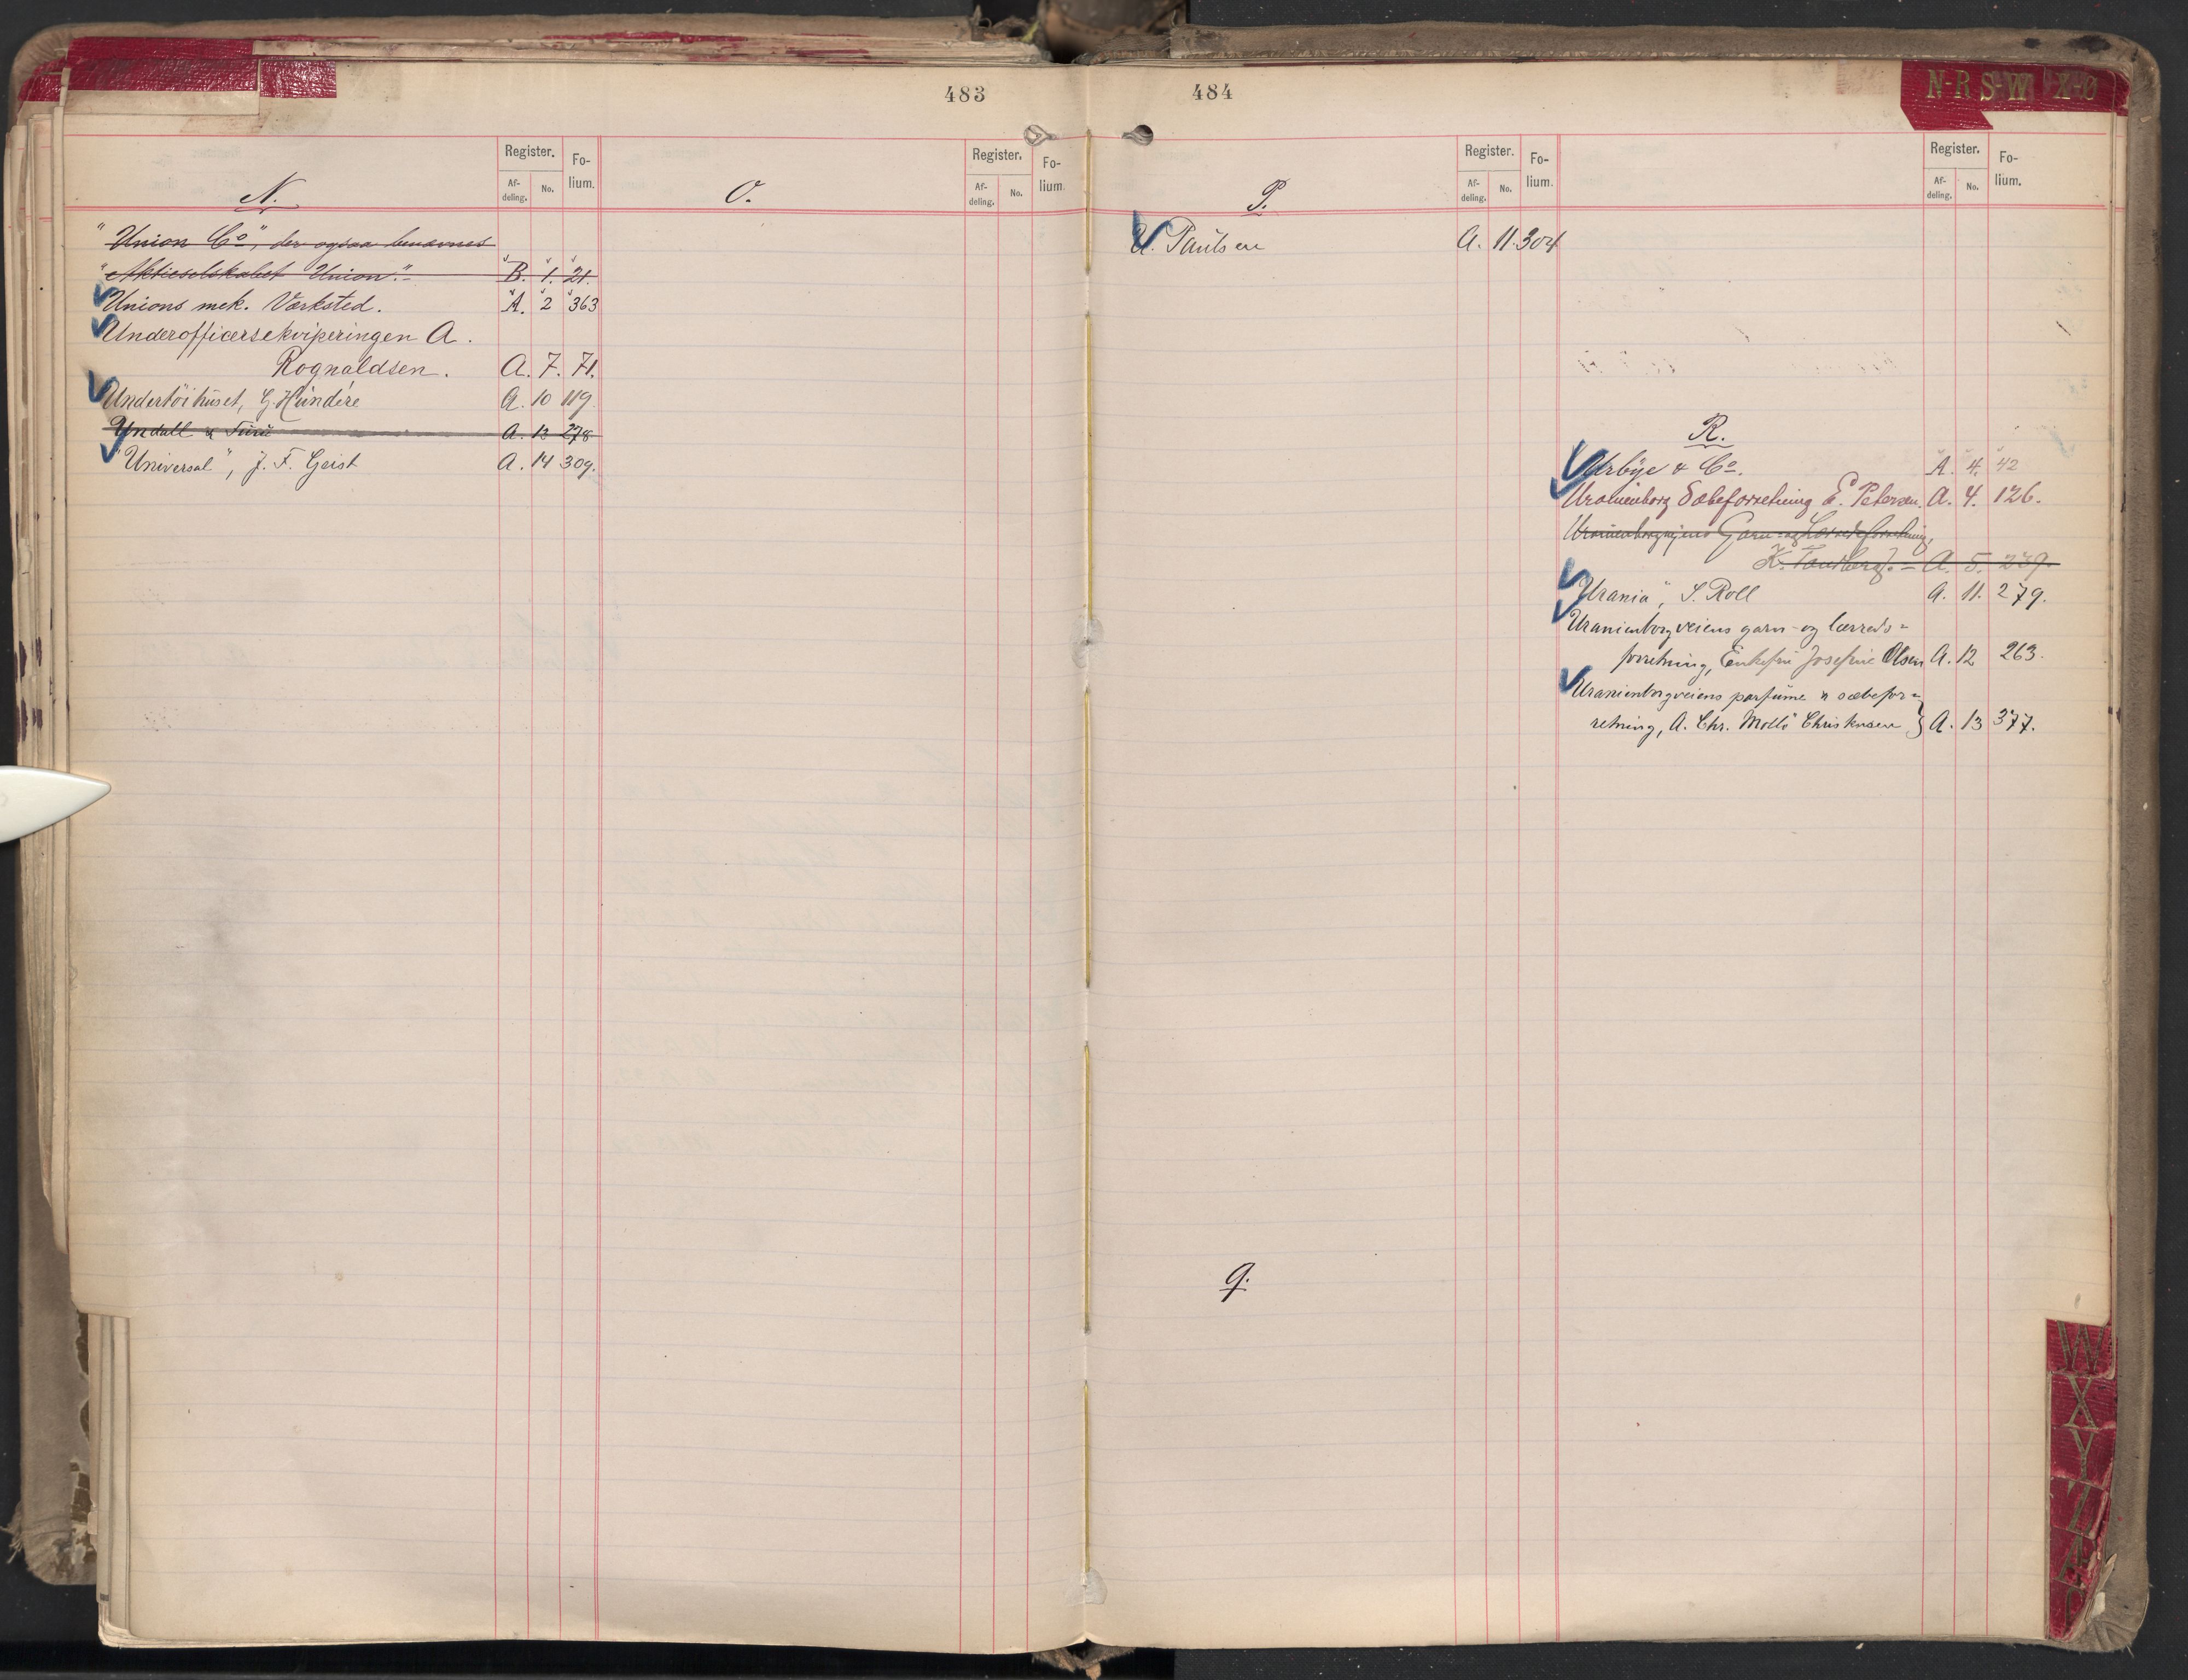 483
Register.
Fo-
lium.
Af-
deling.
No.
N.
Register.
Fo-
lium.
Af-
deling.
No.
O.
"Union Co", der ogsaa benævnes
"Aktieselskabet Union".- B. 1. 21.
Unions mek. Værksted. A. 2 363
Underofficersekviperingen A.
Rognaldsen. A. 7. 71.
Undertöihuset, G. Hundere A. 10 119.
Undall & A. 13 278
"Universal", J. F. Geist A. 14 309.
484
N-R S-W X-Ø
Register.
Fo-
lium.
Af-
deling.
No.
P.
U. Paulsen A. 11. 304
q.
Register.
Fo-
lium.
Af-
deling.
No.
R.
Urbye & Co. A. 4. 42
Uranienborg Sæbeforretning E. Petersen. A. 4. 126.
Uranienborgvejens Garn- og Lærredsforretning,
K. Tandberg. - A. 5. 239.
"Urania", S. Roll A. 11. 279.
Uranienborgveiens garn- og lærreds-
forretning, Enkefru Josefine Olsen A. 12 263.
Uranienborgveiens parfume & sæbefor-
retning, A. Chr. Christensen } A. 13 377.
W
X
Y
Z
Æ